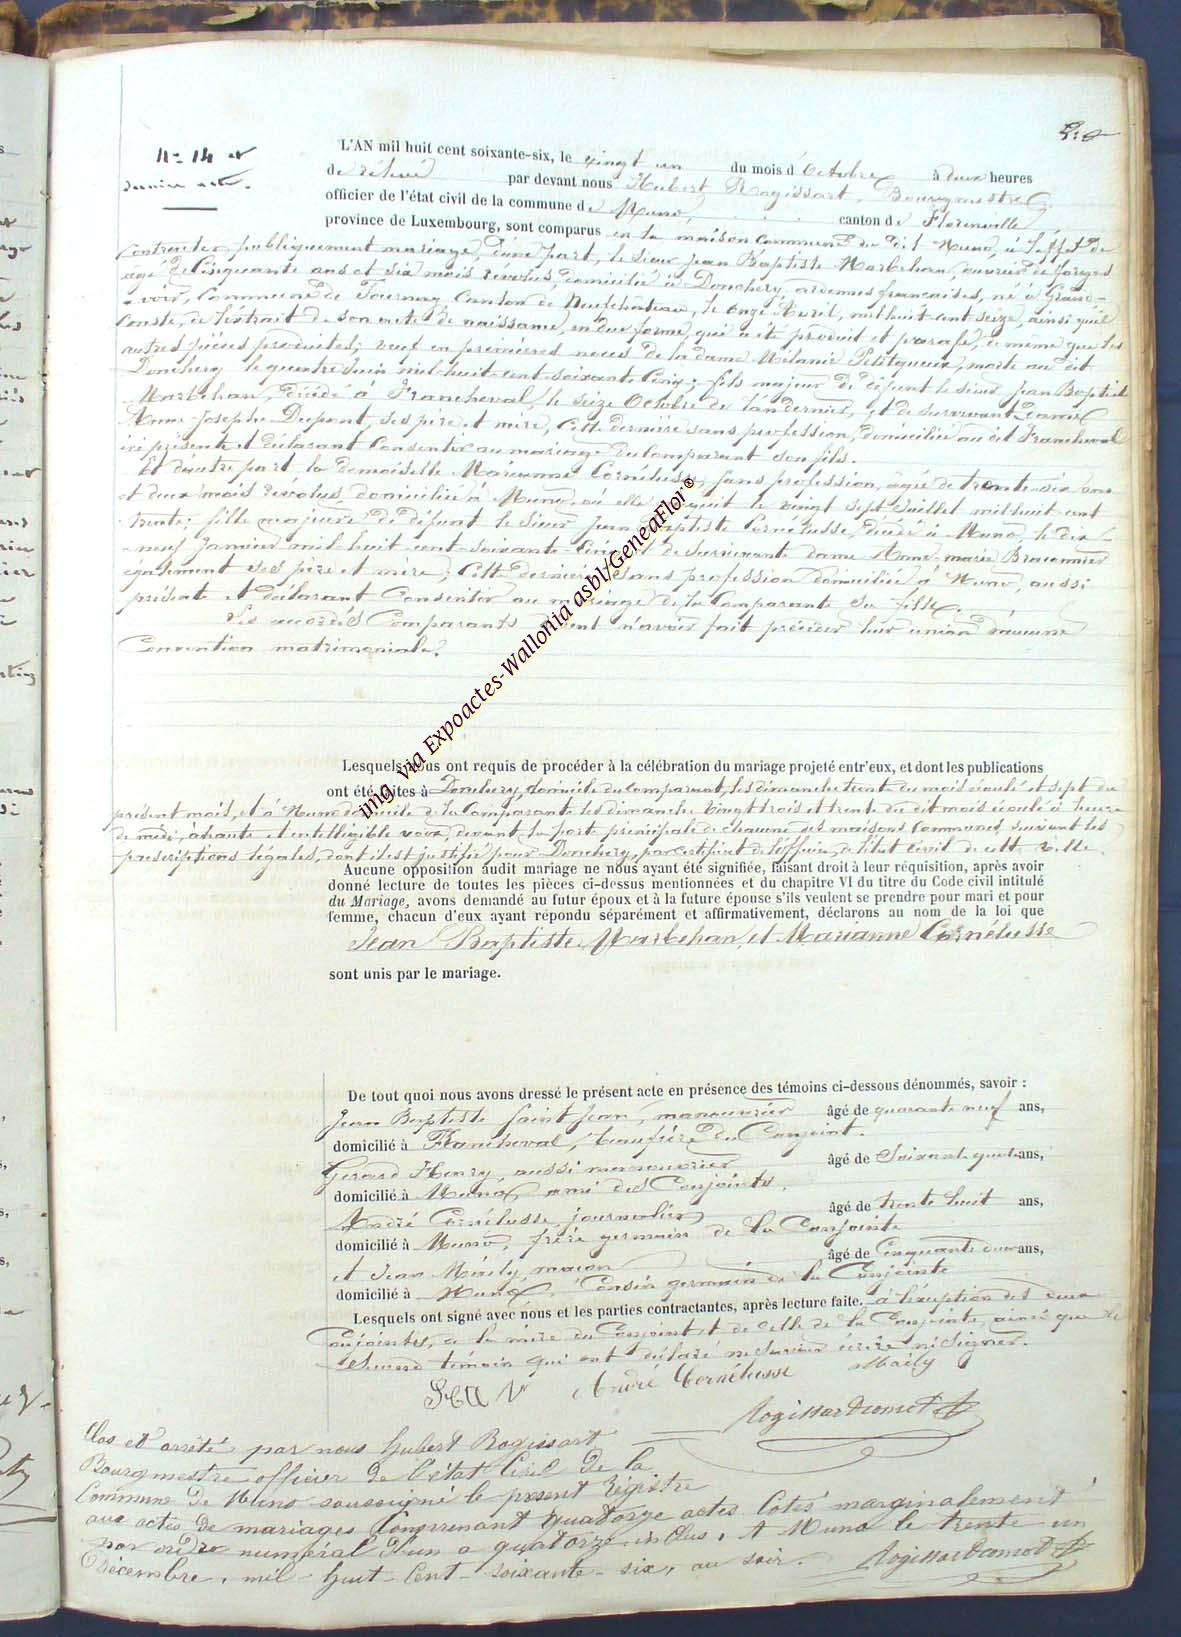 N° 14 et
dernier acte.
L'AN mil huit cent soixante-six, le vingt un du mois d'Octobre à deux heures
de rélevé par devant nous Hubert Rogissart, Bourgmestre
officier de l'état civil de la commune de Muno, canton de Florenville
province de Luxembourg, sont comparus en la maison commune du dit Muno, à l'effet de
contracter publiquement mariage, d'une part, le sieur Jean Baptiste Marbehan, ouvrier de forges
âgé de Cinquante ans et six mois révolus, domicilié à Donchery, ardennes françaises, né à Grand-
voir, Commune de Tournay, Canton de Neufchâteau, le onze Avril, mil huit cent seize, ainsi qu'il
conste, de l'extrait de son acte de naissance, en due forme qui a été produit et parafé, de même que les
autres pièces produites; veuf en premières noces de la dame Mélanie Petitqueux, morte au dit
Donchery le quatre Juin mil huit cent soixante Cinq; fils majeur de défunt le sieur Jean Baptiste
Marbehan, décédé à Francheval, le seize Octobre de l'an dernier, et de survivante dame
Anne Josephe Dupont, ses père et mère, Cette dernière sans profession, domiciliée au dit Francheval
ici présente et déclarant Consentir au mariage du Comparant son fils.
Et d'autre part la demoiselle Marianne Cornélusse, sans profession, âgée de trente-six ans
et deux mois révolus, domiciliée à Muno, où elle naquit le vingt sept Juillet mil huit cent
trente; fille majeure de défunt le sieur Jean Baptiste Cornélusse, décédé à Muno, le dix-
neuf Janvier mil huit cent soixante-Cinq et de survivante dame Anne marie Braconnier
également ses père et mère, Cette dernière sans profession domiciliée à Muno, aussi
présente et déclarant Consentir au mariage de la Comparante sa fille.
Les accordés Comparants disent n'avoir fait précéder leur union d'aucune
Convention matrimoniale.
Lesquels nous ont requis de procéder à la célébration du mariage projeté entr'eux, et dont les publications
ont été faites à Donchery, domicile du comparant, les dimanches trente du mois écoulé et sept du
présent mois, et à Muno domicile de la Comparante les dimanche vingt trois et trente du dit mois écoulé à heure
de midi, à haute et intelligible voix, devant la porte principale de chacune des maisons Communes, suivant les
prescriptions légales, dont il est justifié pour Donchery, par certificat de l'officier de l'état civil de cette ville.
Aucune opposition audit mariage ne nous ayant été signifiée, faisant droit à leur réquisition, après avoir
donné lecture de toutes les pièces ci-dessus mentionnées et du chapitre VI du titre du Code civil intitulé
du Mariage, avons demandé au futur époux et à la future épouse s'ils veulent se prendre pour mari et pour
femme, chacun d'eux ayant répondu séparément et affirmativement, déclarons au nom de la loi que
Jean Baptiste Marbehan, et Marianne Cornélusse
sont unis par le mariage.
De tout quoi nous avons dressé le présent acte en présence des témoins ci-dessous dénommés, savoir :
Jean Baptiste Saint Jean, manouvrier âgé de quarante neuf ans,
domicilié à Francheval, beaufrère du Conjoint.
Gerard Henry, aussi manouvrier âgé de Soixante quatre ans,
domicilié à Muno, ami des Conjoints.
André Cornélusse, journalier âgé de trente huit ans,
domicilié à Muno, frère germain de la Conjointe
et Jean Maily, maçon âgé de Cinquante deux ans,
domicilié à Muno, Cousin germain de la Conjointe
Lesquels ont signé avec nous et les parties contractantes, après lecture faite. à l'exception des deux
conjointes, de la mère du Conjoint et de celle de la Conjointe, ainsi que le
second témoin qui ont déclaré ne savoir écrire ni signer.
André Cornélusse Maily
Clos et arrêté par nous Hubert Rogissart
Bourgmestre officier de l'état Civil de la
Commune de Muno soussigné le présent Régistre
aux actes de mariages Comprenant quatorze actes Cotés marginalement
par ordre numéral d'un à quatorze inclus. A Muno le trente-un
Décembre, mil-huit-Cent-soixante-six, au soir.
img. via Expoactes-Wallonia asbl/GeneaFlor®